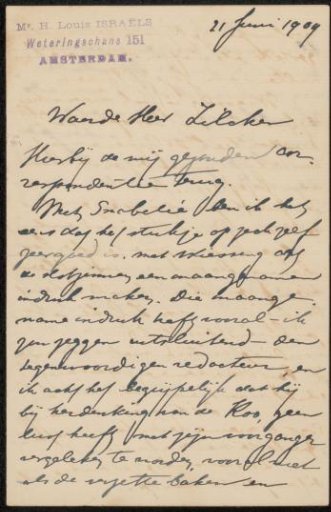 Mr. H. Louis ISRAËLS
Weteringschans 151
AMSTERDAM.
21 Juni 1909
Waarde Heer Zilcken
Hierbij de mij gezonden cor-
respondentie terug.
Met Snabelié ben ik het
eens dat het stukje op zich zelf
zeer goed is, met
de slotzinnen een onaangenamen
indruk maken. Die onaange-
name indruk heeft vooral - ik
zou zeggen uitsluitend - den
tegenwoordigen redacteur, en
ik acht het begrijpelijk dat hij
bij herdenking van de Koo, geen
lust heeft met zijn voorganger
vergeleken te worden, vooral niet
als de en